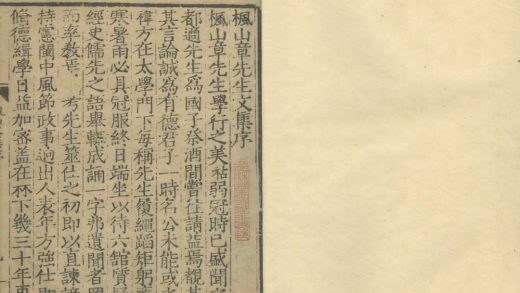 楓山章先生文集序
楓山章先生學行之美祐弱冠時已盛聞
都適先生為國子祭酒間嘗往請益焉覩其
其言論誠為有德君子一時名公未能或
褘方在太學門下每稱先生履繩蹈矩躬
寒暑雨必具冠服終日端坐以待六館質疑
經史儒先之語舉輒成誦一字弗遺聞者
而奉教焉 考先生筮仕之初即以直諫
持憲閩中風節政事迥出人表年方強仕即
脩德緝學日益加密蓋在林下幾三十年